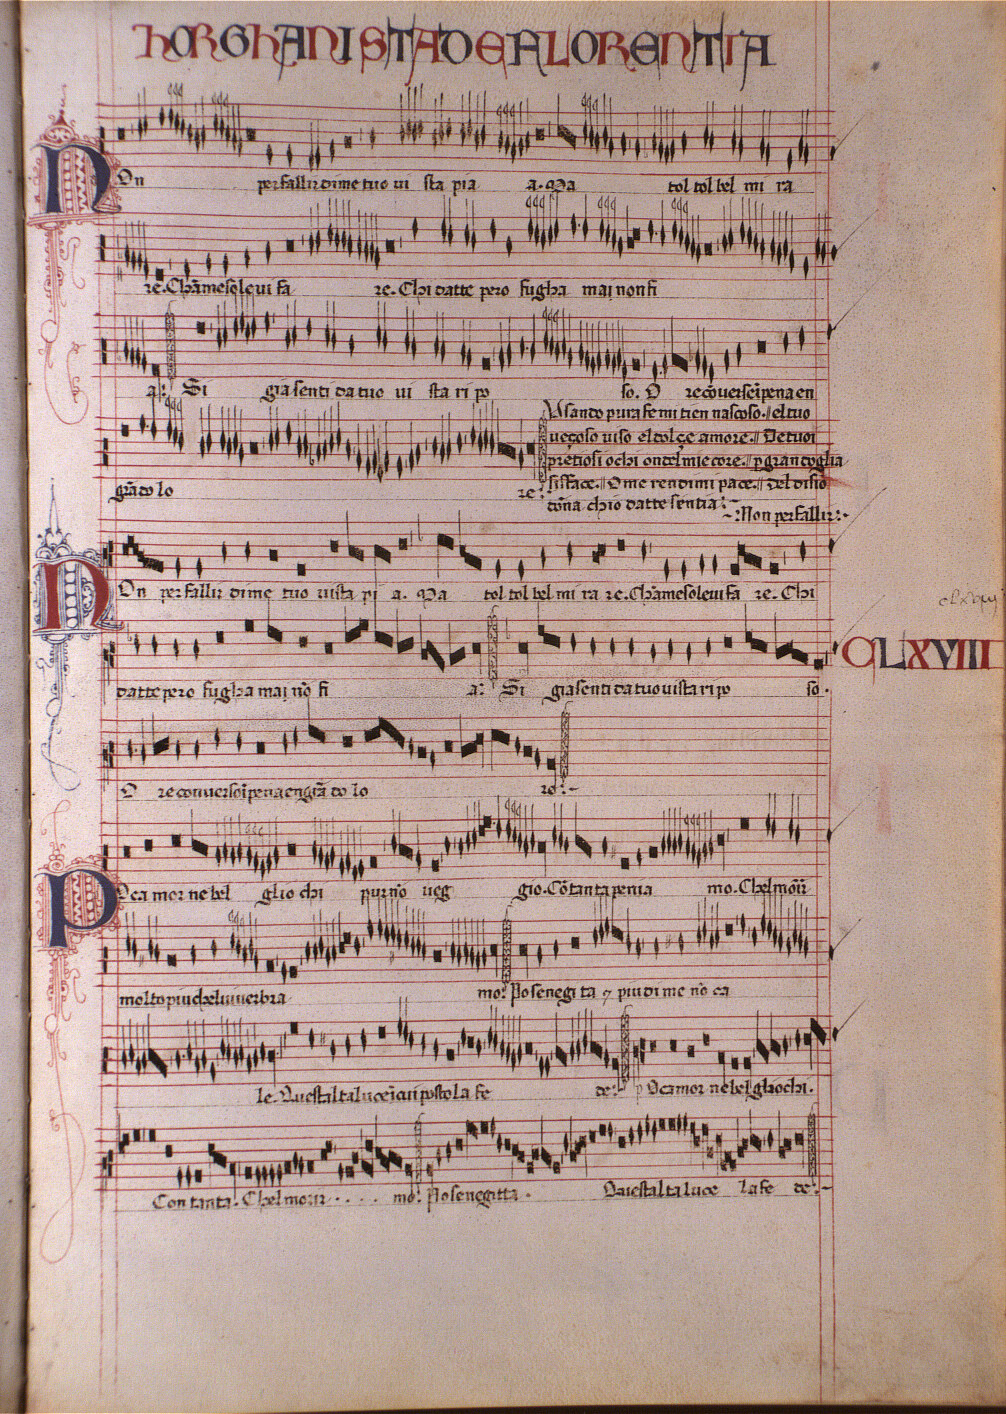 hORGhANISTA DE FLORENTIA
Non per fallir di me tuo vi sta pia a. Ma tol tol bel mi ra
re. Chāme sole vi fa re. Chi datte pero fugha mai non fi
a: Si gia senti da tuo vi sta ri po so. O re cōversei pena en
Usando pura fe mi tien nascoso. el tuo
veçoso viso el dolçe amore. De tuoi
pretiosi ochi ondel mie core. p gran voglia
si sface. O me rendimi pace. del disio
dōna chio datte sentia:
grā do lo re:
:Non per fallir:
Non per fallir di me tuo vista pi a. Ma tol tol bel mi ra re. Chāme sole vi fa re. Chi
CLXVIII
datte pero fugha mai nō fi a: Si gia senti da tuo vista ri po so.
O re conversei pena en grā do lo re:
Poca mor ne bel glio chi pur nō veg gio. Cō tanta penia mo. Chel morir
molto piu chel viver bra mo: Po se negi ta piu di me nō ca
le. Quest alta luce ī cui posto la fe de: Poca mor ne bel gliochi.
Con tanta. Chel morir . . . . mo. Po se negitta. Quest alta luce la fe de: